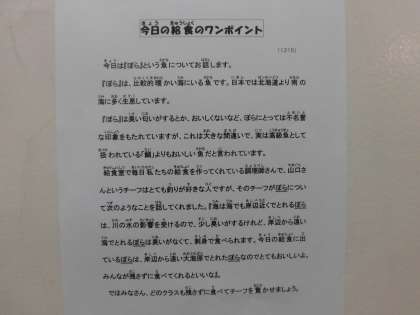 今日の給食のワンポイント
(12/5)
今日は『ぼら』という魚についてお話します。
『ぼら』は、比較的暖かい海にいる魚です。日本では北海道より南の
海に多く生息しています。
『ぼら』は臭い匂いがするとか、おいしくないなど、ぼらにとっては不名誉
な印象をもたれていますが、これは大きな間違いで、実は高級魚として
扱われている「鯛」よりもおいしい魚だと言われています。
給食室で毎日私たちの給食を作ってくれている調理師さんで、山口さ
んというチーフはとても釣りが好きな人ですが、そのチーフがぼらについ
て次のようなことを話してくれました。『海は海でも岸辺近くでとれるぼら
は、川の水の影響を受けるので、少し臭いがするけれど、岸辺から遠い
海でとれるぼらは臭いがなくて、刺身で食べられます。今日の給食に出
ているぼらは、岸辺から遠い大海原でとれたぼらなのでとてもおいしいよ。
みんなが残さずに食べてくれるといいな』。
ではみなさん、どのクラスも残さずに食べてチーフを驚かせましょう。